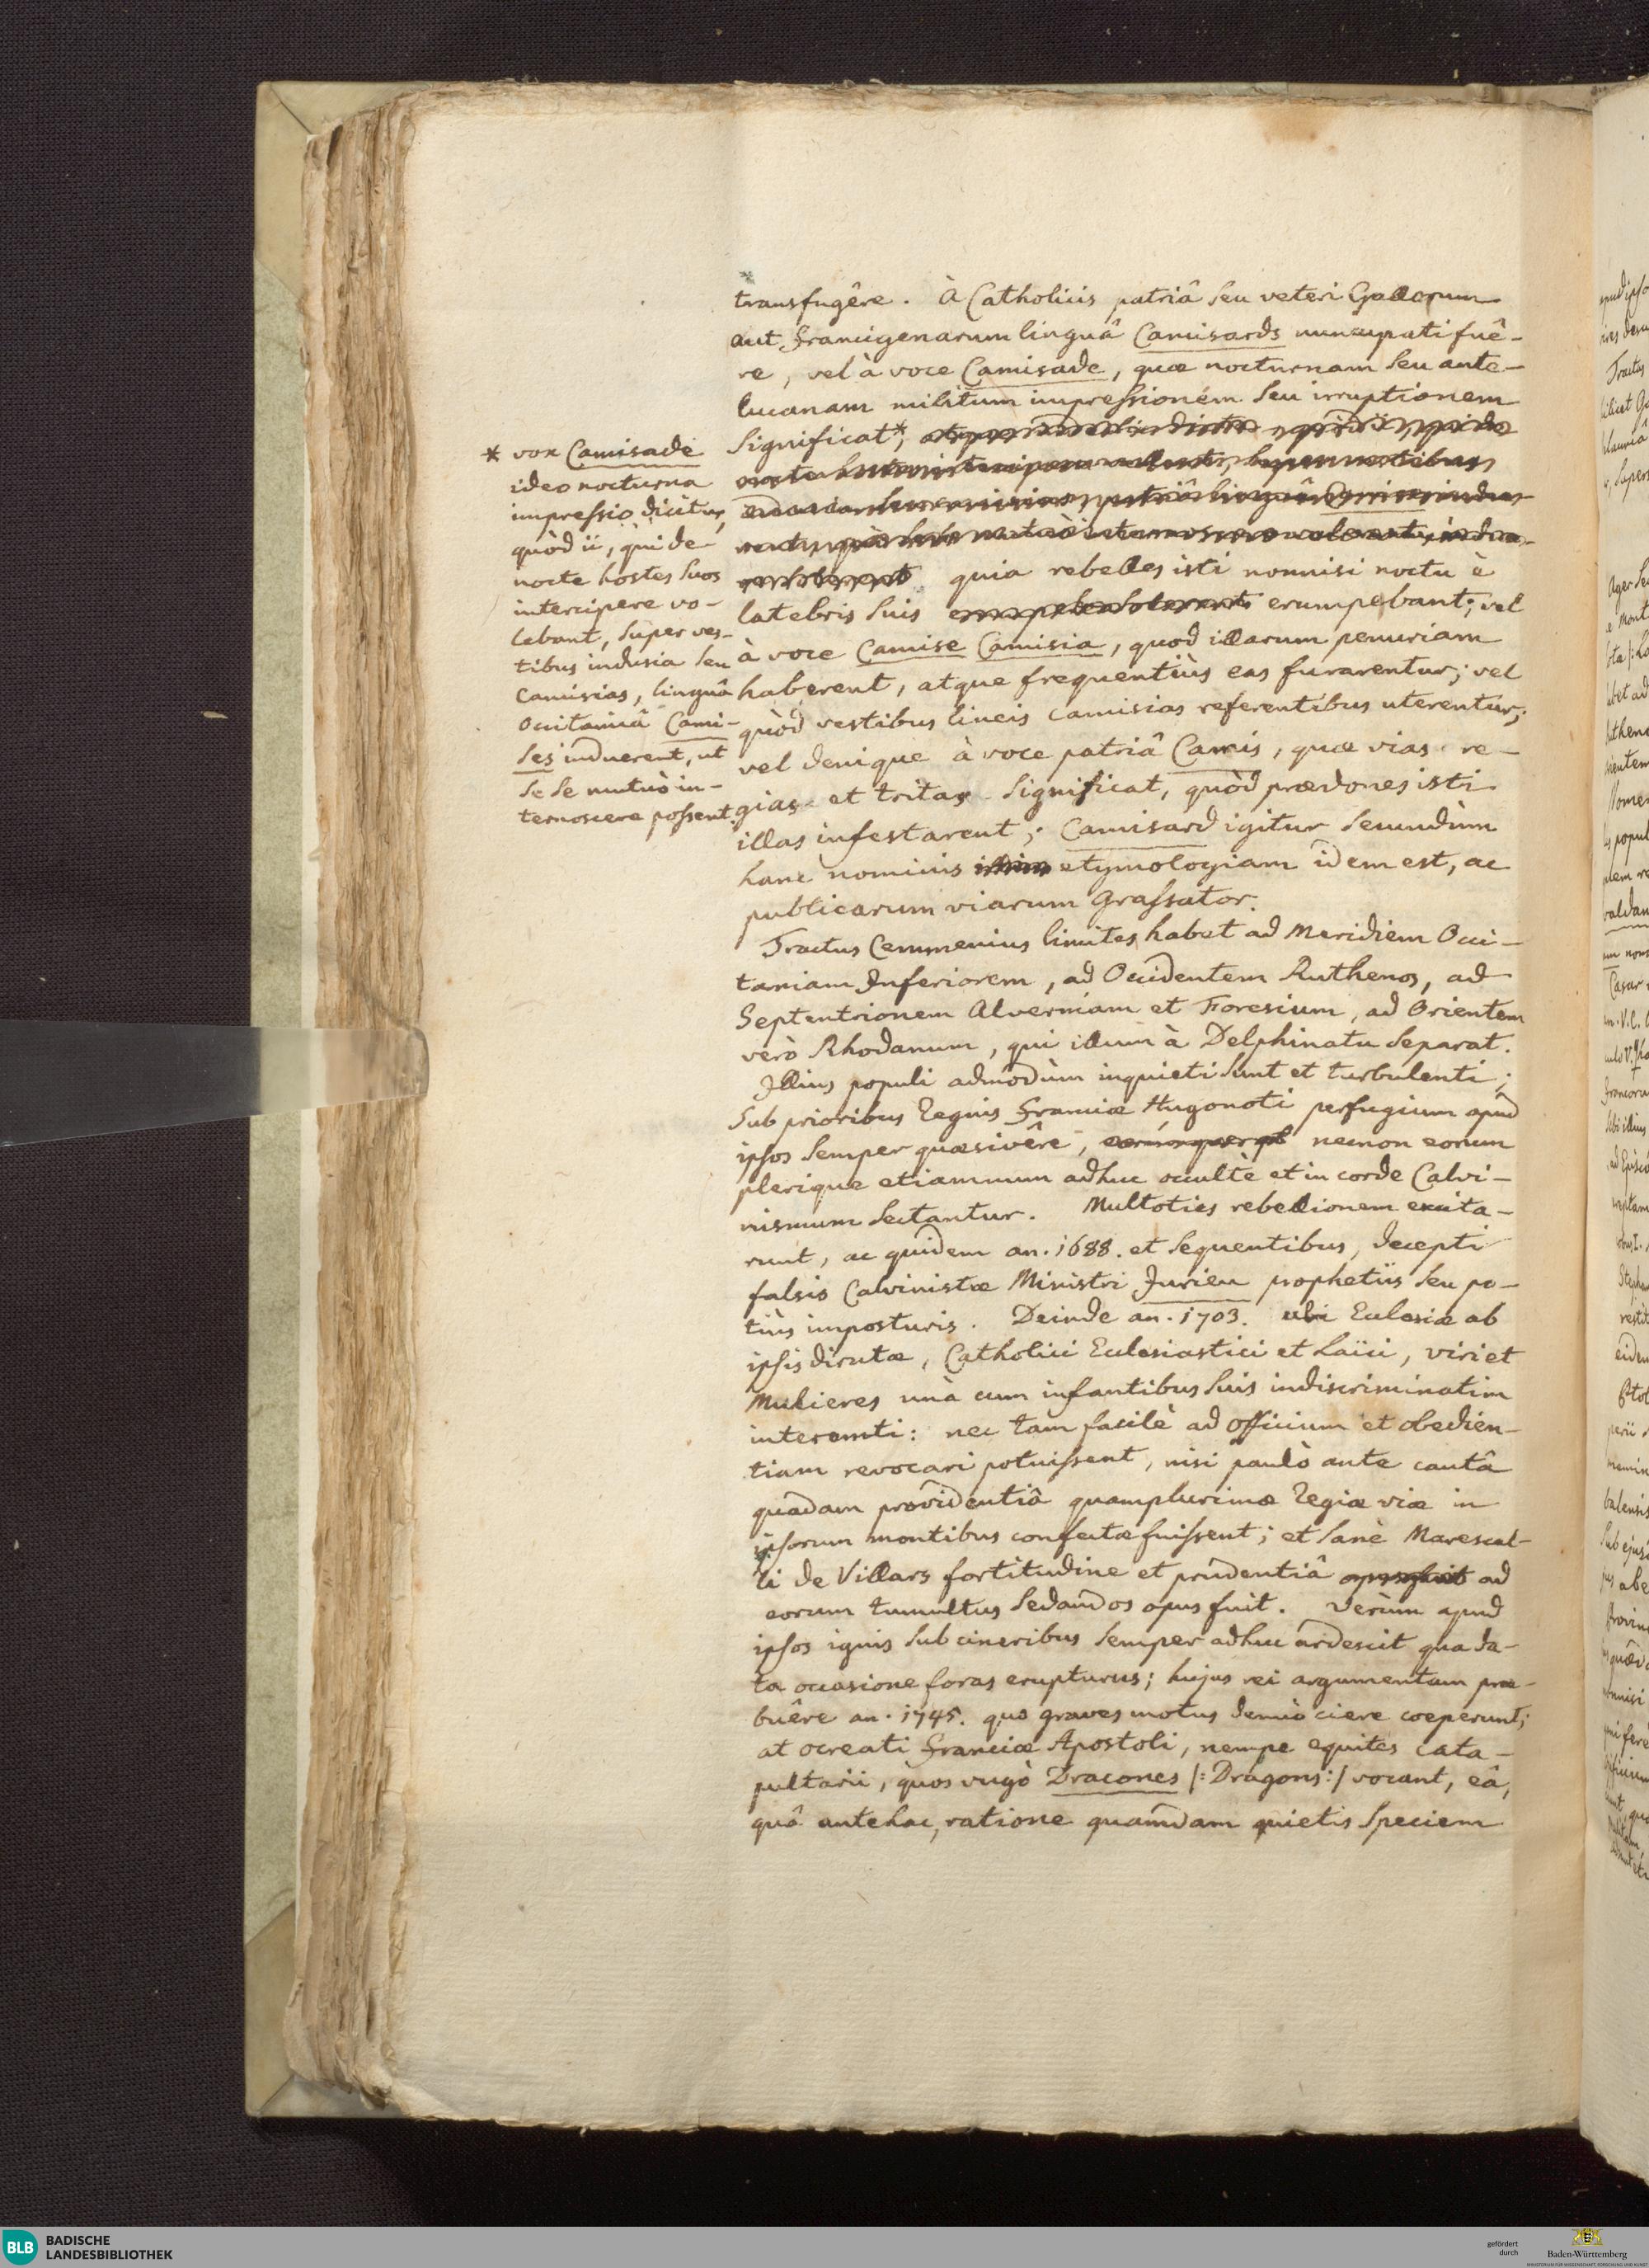 transfugêre. À Catholicis patriâ seu veteri Gallorum
aut Francigenarum linguâ Camisards nuncupati fuê-
re, vel à voce Camisade, quæ nocturnam seu ante-
lucanam militum impressionem seu irruptionem
significat*;
quia rebelles isti nonnisi noctu è
latebris suis erumpebant; vel
à voce Camise Camisia, quod illarum penuriam
haberent, atque frequentiùs eas furarentur; vel
quòd vestibus lineis camisias referentibus uterentur;
vel denique à voce patriâ Camis, quæ vias re-
gias et tritas significat, quòd prædones isti
illas infestarent; Camisard igitur secundùm
hanc nominis etymologiam idem est, ac
publicarum viarum grassator.
* vox Camisade
ideo nocturna
impressio dicitur,
quòd ii, qui de
nocte hostes suos
intercipere vo-
lebant, super ves-
tibus indusia seu
Camisias, linguâ
Occitaniâ Cami-
ses induerent, ut
se se mutuò in-
ternoscere possent.
Tractus Cemmenius limites habet ad Meridiem Occi-
taniam Inferiorem, ad Occidentem Ruthenos, ad
Septentrionem Alverniam et Foresium, ad Orientem
verò Rhodanum, qui illum à Delphinatu separat.
Illius populi admodùm inquieti sunt et turbulenti;
sub prioribus Regnis Franciæ Hugonoti perfugium apud
ipsos semper quæsivêre, necnon eorum
plerique etiamnum adhuc occultè et in corde Calvi-
nismum sectantur. Multoties rebellionem excita-
runt, ac quidem an. 1688. et sequentibus, decepti
falsis Calvinistæ Ministri Jurieu prophetiis seu po-
tiùs imposturis. Deinde an. 1703. ubi Ecclesiæ ab
ipsis dirutæ, Catholici Ecclesiastici et Laïci, viri et
Mulieres unà cum infantibus suis indiscriminatim
interemti: nec tam facilè ad officium et obedien-
tiam revocari potuissent, nisi paulò ante cautâ
quâdam providentiâ quamplurimæ Regiæ viæ in
ipsorum montibus confectæ fuissent; et sanè Marescal-
li de Villars fortitudine et prudentiâ ad
eorum tumultus sedandos opus fuit. Verùm apud
ipsos ignis sub cineribus semper adhuc ardescit qua da-
ta occasione foras erupturus; hujus rei argumentum præ-
buêre an. 1745. quo graves motus denuò ciere coeperunt;
at ocreati Franciæ Apostoli, nempe equites cata-
pultarii, quos vugò Dracones |: Dragons :| vocant, eâ,
quâ antehac, ratione quamdam quietis speciem
BLB BADISCHE
LANDESBIBLIOTHEK
gefördert
durch
Baden-Württemberg